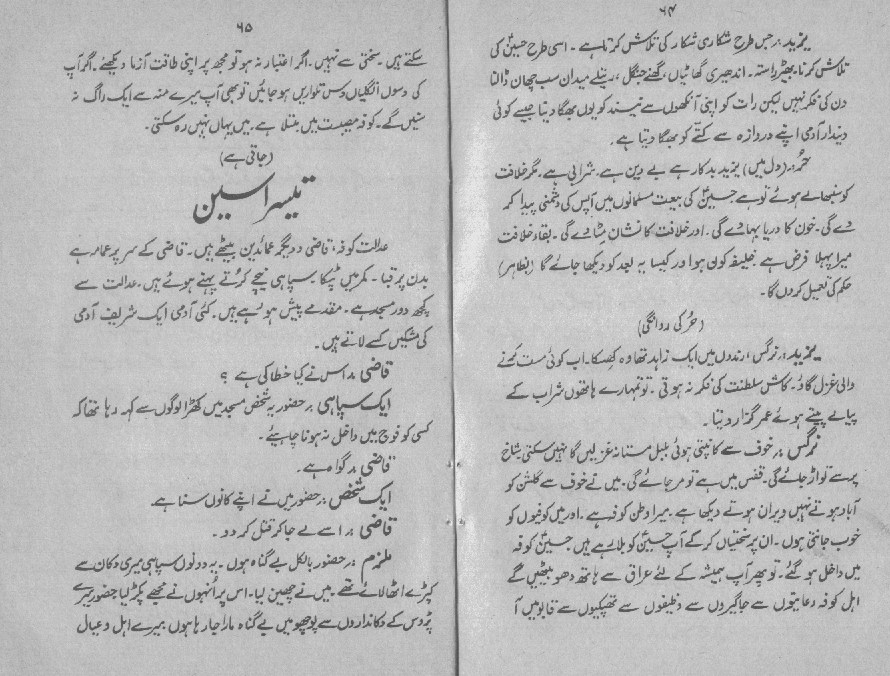 ۶۴
یزید :۔ جس طرح شکاری شکار کی تلاش کرتا ہے ۔ اسی طرح حسینؑ کی
تلاش کرنا۔ بھتر راستہ ۔ اندھیری گھاٹیاں ، گھنے جنگل ، ریتیلے میدان سب چھان ڈالنا
دن کی فکر نہیں لیکن رات کو اپنی آنکھوں سے نیند کو یوں بھگا دینا جیسے کوئی
دیندار آدمی اپنے دروازہ سے کتّے کو بھگا دیتا ہے ۔
حُر :۔ (دل میں) یزید بدکار ہے بے دین ہے ۔ شرابی ہے ۔ مگر خلافت
کو سنبھالے ہوئے تو ہے حسینؑ کی بیعت مسلمانوں میں آپس کی دشمنی پیدا کر
دے گی ۔ خون کا دریا بہا دے گی ۔ اور خلافت کا نشان مٹا دے گی ۔ بقاء خلافت
میرا پہلا فرض ہے خلیفہ کون ہو اور کیسا یہ بعد کو دیکھا جائے گا (بظاہر)
حکم کی تعمیل کر دوں گا ۔
(حُر کی روانگی)
یزید :۔ نرگس ، رندوں میں ایک زاہد تھا وہ کھسکا ۔ اب کوئی مست کرنے
والی غزل گاؤ ۔ کاش سلطنت کی فکر نہ ہوتی ۔ تو تمہارے ہاتھوں شراب کے
پیالے پیتے ہوئے عمر گزار دیتا ۔
نرگس :۔ خوف سے کانپتی ہوئی بلبل مستانہ غزلیں گا نہیں سکتی شاخ
پر سے تو اڑ جائے گی ۔ قفس میں ہے تو مر جائے گی ۔ میں نے خوف سے گلشن کو
آباد ہوتے نہیں ویران ہوتے دیکھا ہے ۔ میرا وطن کوفہ ہے ۔ اور میں کوفیوں کو
خوب جانتی ہوں ۔ ان پر سختیاں کر کے آپ حسینؑ کو بلا رہے ہیں حسینؑ کوفہ
میں داخل ہو گئے ۔ تو پھر آپ ہمیشہ کے لئے عراق سے ہاتھ دھو بیٹھیں گے
اہل کوفہ رعایتوں سے جاگیروں سے وظیفوں سے تھپکیوں سے قابو میں آ
۶۵
سکتے ہیں ۔ سختی سے نہیں ۔ اگر اعتبار نہ ہو تو مجھ پر اپنی طاقت آزما دیکھئے ۔ اگر آپ
کی دسوں انگلیاں دس تلواریں ہو جائیں تو بھی آپ میرے منہ سے ایک راگ نہ
سنیں گے ۔ کوفہ مصیبت میں مبتلا ہے ۔ میں یہاں نہیں رہ سکتی ۔
(جاتی ہے)
تیسرا سین
عدالت کوفہ ، قاضی و دیگر عمائدین بیٹھے ہیں ۔ قاضی کے سر پر عمامہ ہے
بدن پر قبا ۔ کمر میں ٹپکا ۔ سپاہی نیچے کُرتے پہنے ہوئے ہیں ۔ عدالت سے
کچھ دور مسجد ہے ۔ مقدمے پیش ہو رہے ہیں ۔ کئی آدمی ایک شریف آدمی
کی مشکیں کسے لاتے ہیں ۔
قاضی :۔ اس نے کیا خطا کی ہے ؟
ایک سپاہی :۔ حضور یہ شخص مسجد میں کھڑا لوگوں سے کہہ رہا تھا کہ
کسی کو فوج میں داخل نہ ہونا چاہیئے ۔
قاضی :۔ گواہ ہے ۔
ایک شخص :۔ حضور میں نے اپنے کانوں سنا ہے
قاضی :۔ اسے لے جا کر قتل کر دو ۔
ملزم :۔ حضور بالکل بے گناہ ہوں ۔ یہ دونوں سپاہی میری دکان سے
کپڑے اٹھا لائے تھے ۔ میں نے چھین لیا ۔ اس پر اُنہوں نے مجھے پکڑ لیا حضور میرے
پڑوس کے دکانداروں سے پوچھو میں بے گناہ مارا جا رہا ہوں ۔ میرے اہل و عیال